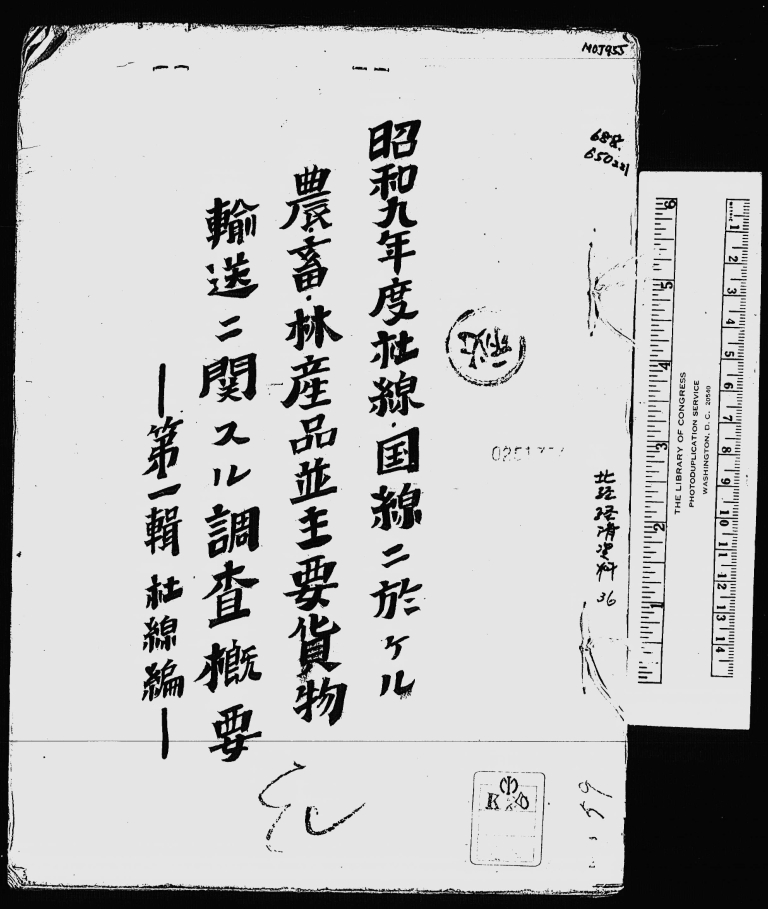 MOJ955
昭和九年度社線·国線ニ於ケル
農·畜·林産品並主要貨物
輸送ニ関スル調査概要
—第一輯 社線編—
36
59
6
5
4
3
2
1
THE LIBRARY OF CONGRESS
PHOTODUPLICATION SERVICE
WASHINGTON, D. C. 20540
1 2 3 4 5 6 7 8 9 10 11 12 13 14